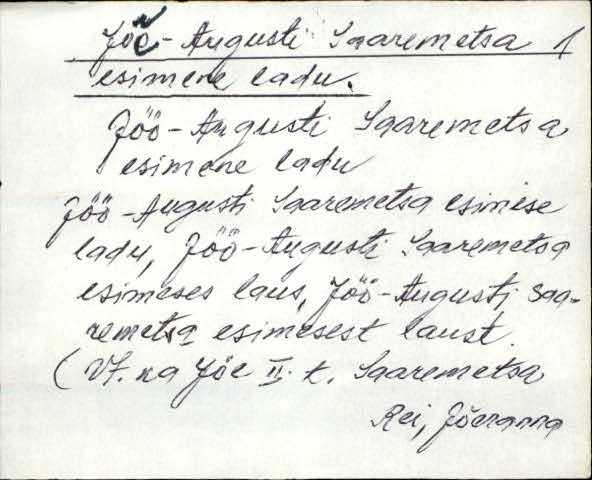 Jõe-Augusti Saaremetsa 1
esimene ladu.
Jöö-Augusti Saaremetsa
esimene ladu
Jöö-Augusti Saaremetsa esimese
ladu, Jöö-Augusti Saaremetsa
esimeses laus, Jöö-Augusti Saa-
remetsa esimesest laust.
(Vt. ka Jõe II t. Saaremetsa
Rei, Jõeranna